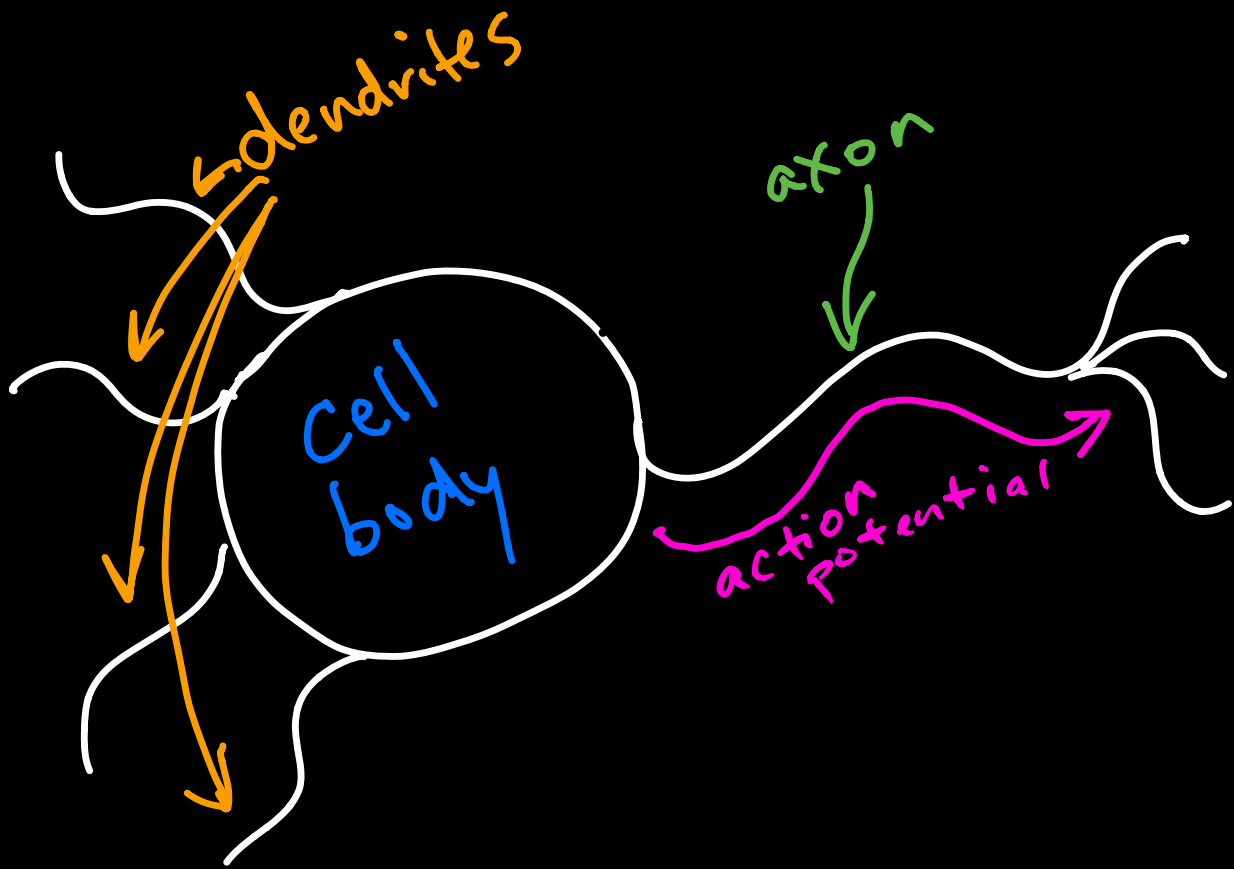 dendrites
axon
Cell
body
action
potential